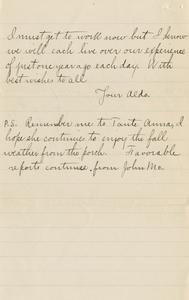 I must get to work now but I know
we will each live over our experience
of just one year ago each day. With
best wishes to all
Your Aldo.
P.S. Remember me to Tante Anna, I
hope she continue to enjoy the fall
weather from the porch. Favorable
reports continue, from John Mc.